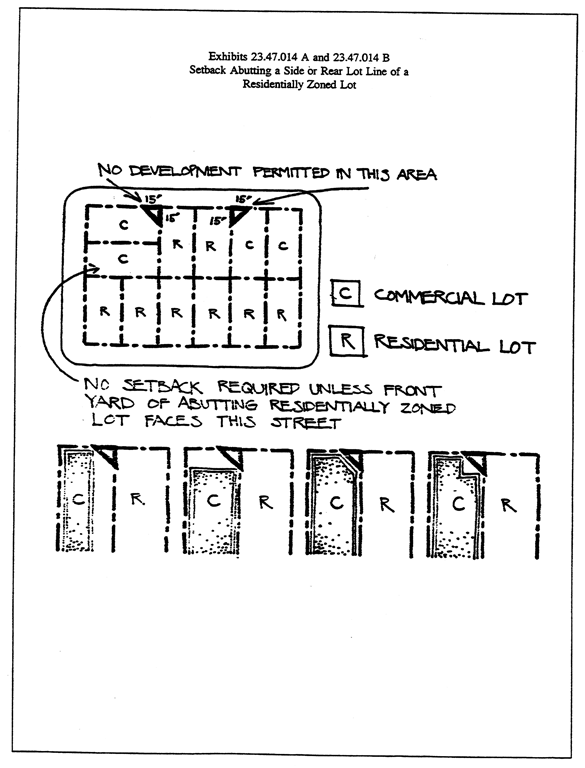 Exhibits 23.47.014 A and 23.47.014 B
Setback Abutting a Side or Rear Lot Line of a
Residentially Zoned Lot
NO DEVELOPMENT PERMITTED IN THIS AREA
15' 15'
15' 15'
C R R C C
C
R R R R R R
C COMMERCIAL LOT
R RESIDENTIAL LOT
NO SETBACK REQUIRED UNLESS FRONT
YARD OF ABUTTING RESIDENTIALLY ZONED
LOT FACES THIS STREET
C R C R C R C R